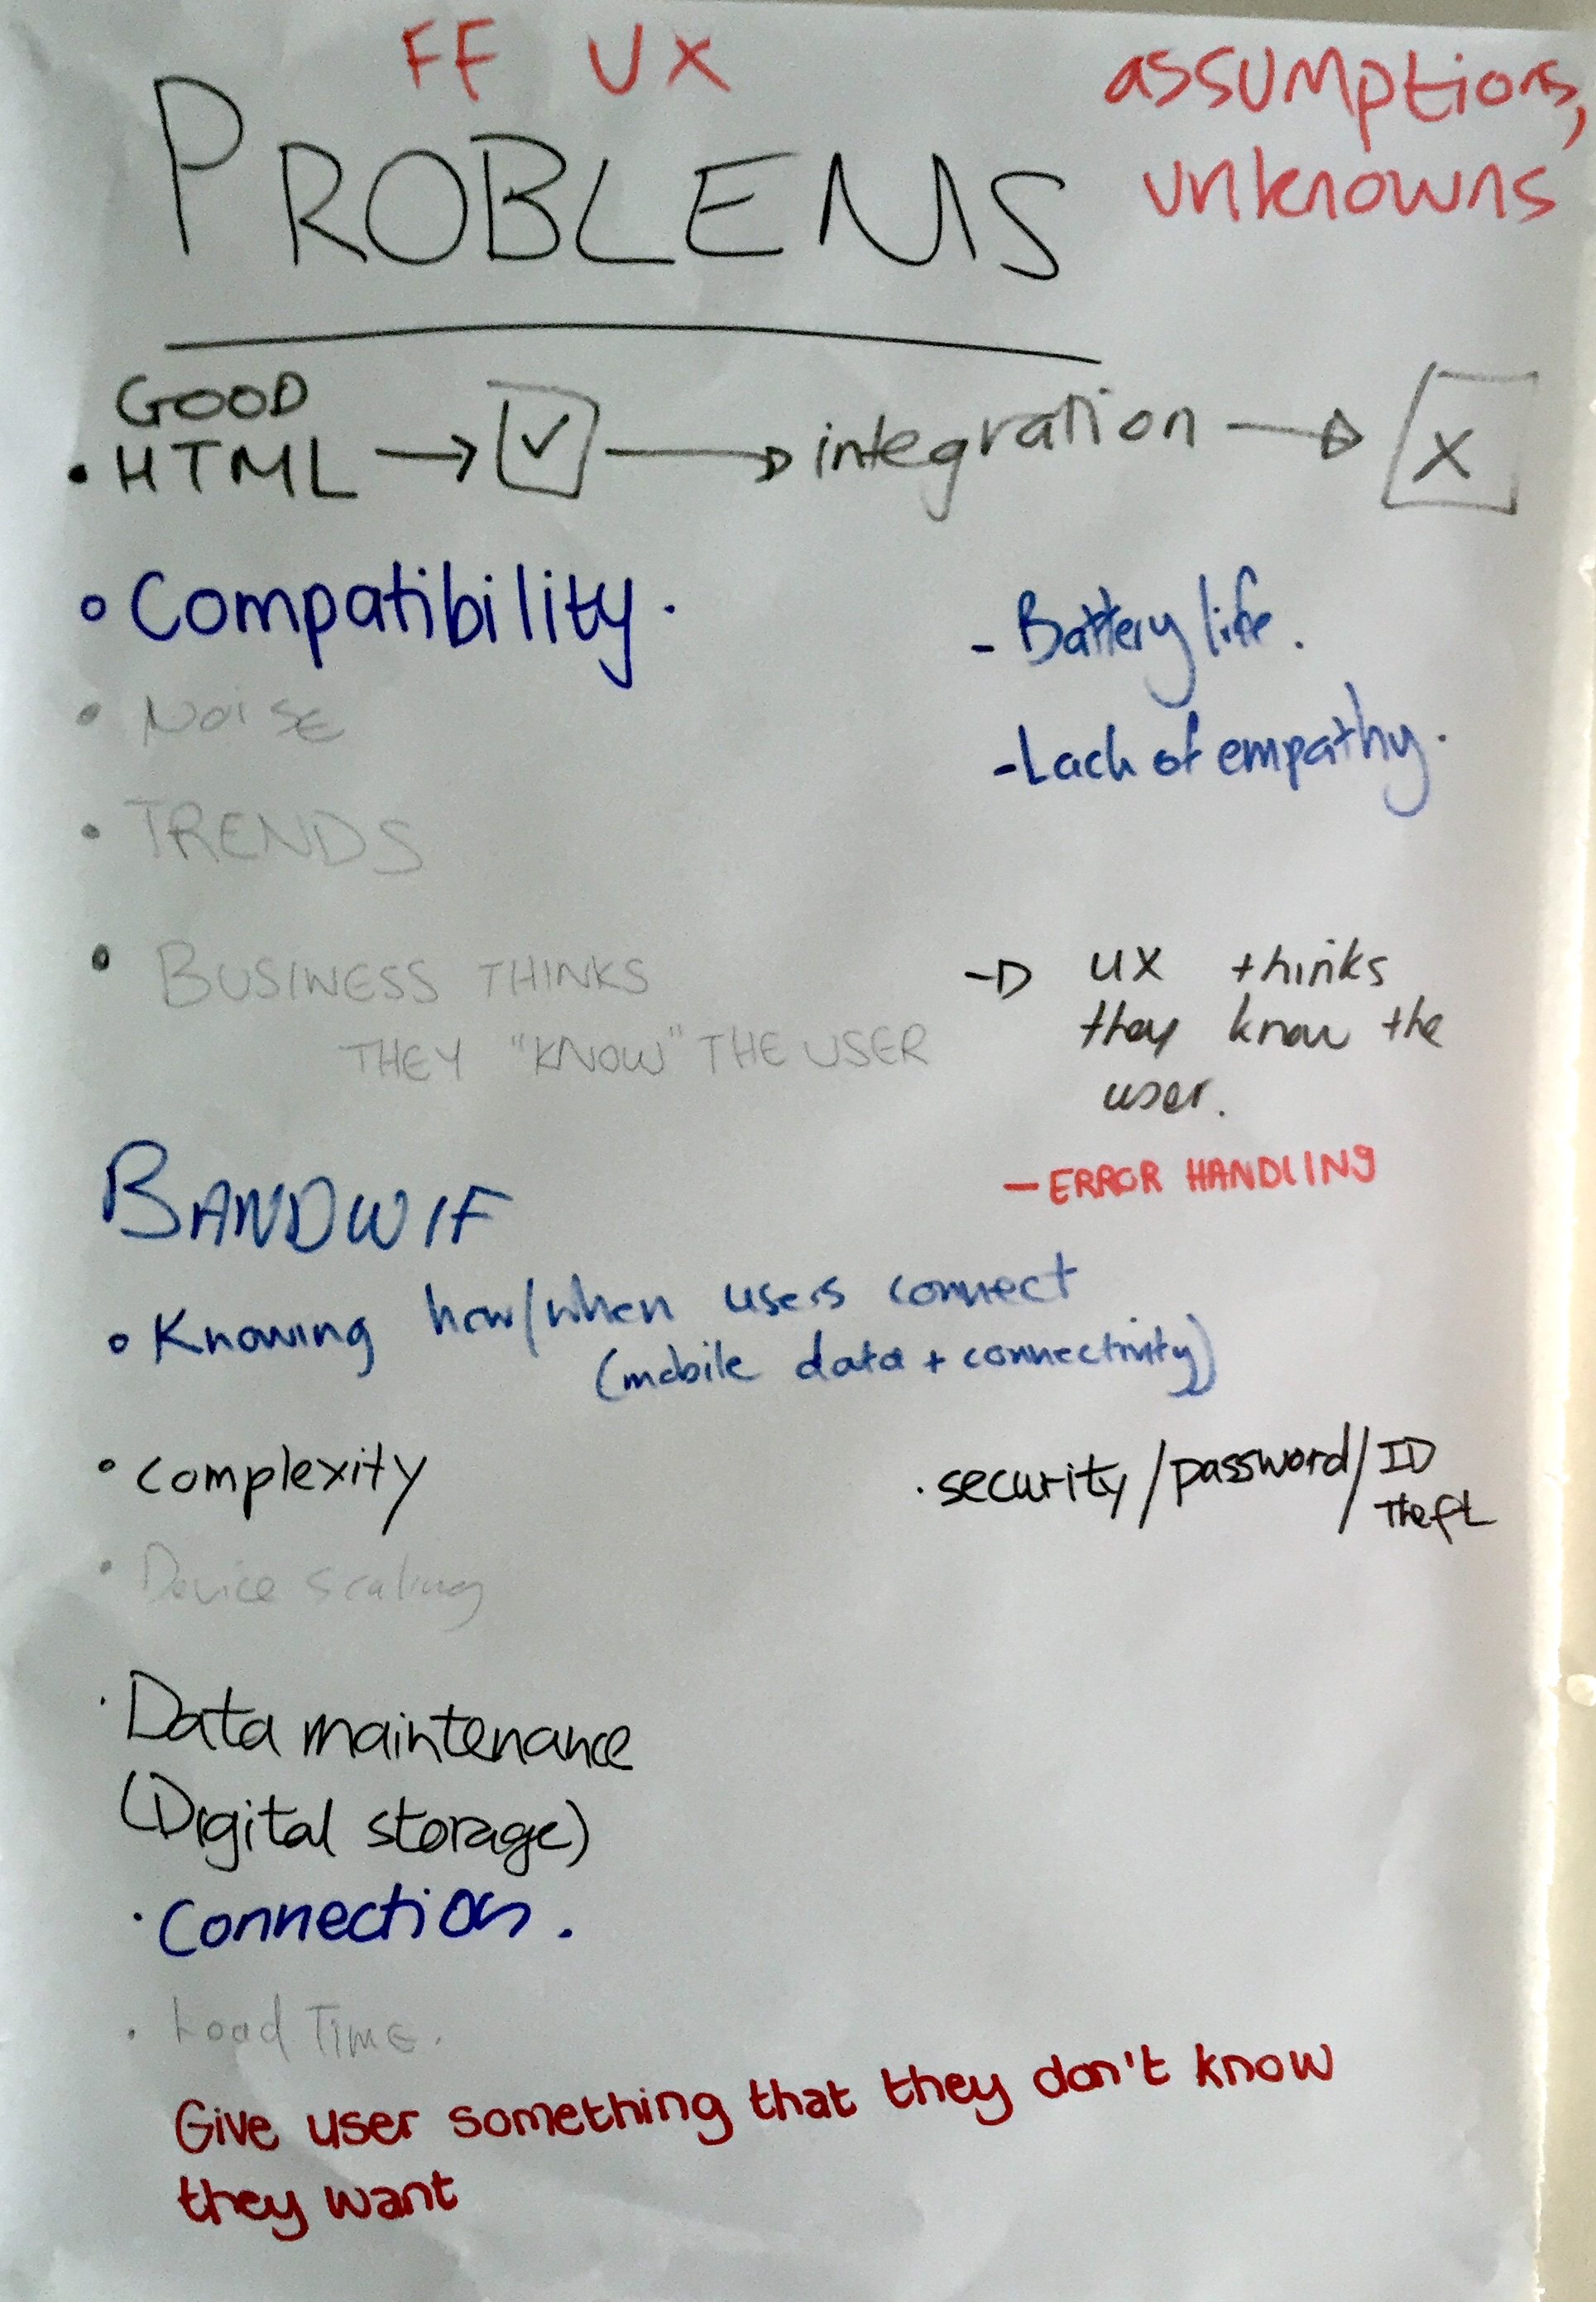 FF UX
assumptions,
unknowns
PROBLEMS
GOOD
• HTML → ☑ → integration → ☒
∘ Compatibility.
- Battery life.
• NOISE
- Lack of empathy.
• TRENDS
• BUSINESS THINKS
THEY "KNOW" THE USER
→ UX thinks
they know the
user.
BANDWIF
— ERROR HANDLING
∘ Knowing how/when users connect
(mobile data + connectivity)
• complexity
· security/password/ID
Theft
• Device scaling
· Data maintenance
(Digital storage)
· Connection.
· Load Time.
Give user something that they don't know
they want